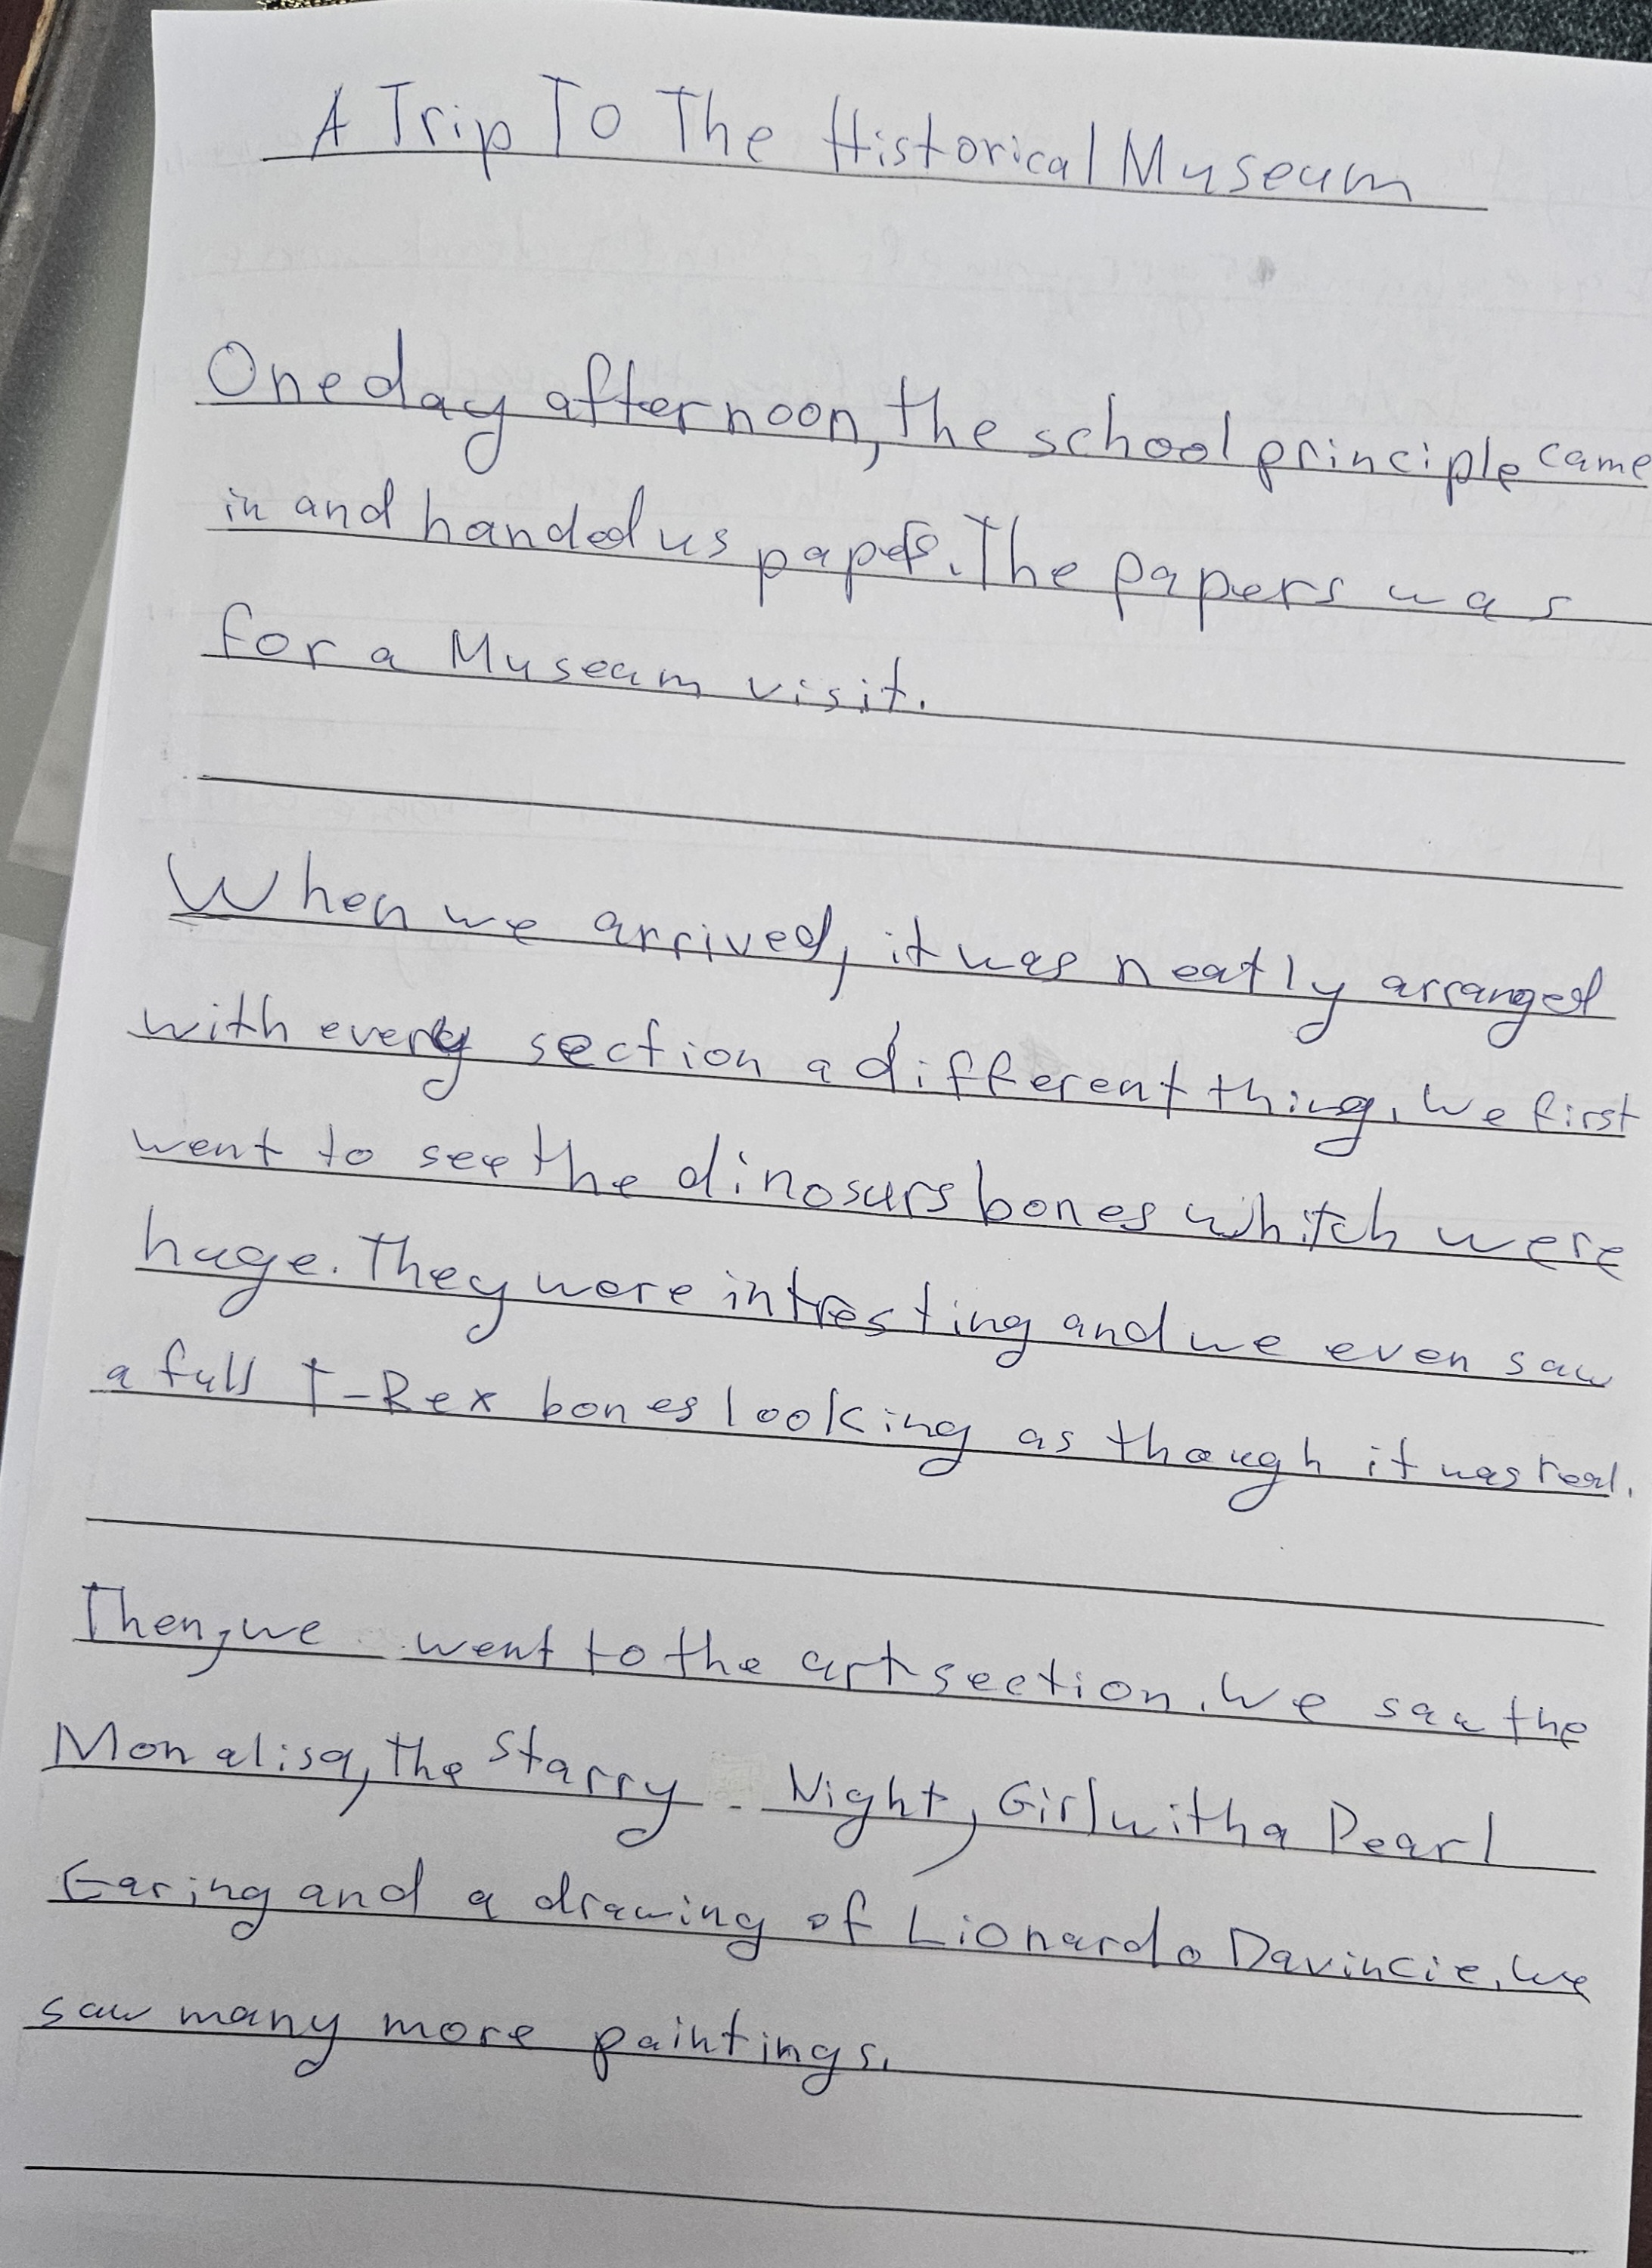 A Trip To The Historical Museum
One day afternoon, the school principle came
in and handed us papers. The papers was
for a Museum visit.
When we arrived, it was neatly arranged
with every section a different thing. We first
went to see the dinosurs bones whitch were
huge. They were intresting and we even saw
a full T-Rex bones looking as though it was real.
Then, we went to the art section. We saw the
Monalisa, the Starry Night, Girl with a Pearl
Earing and a drawing of Lionardo Davincie. We
saw many more paintings.